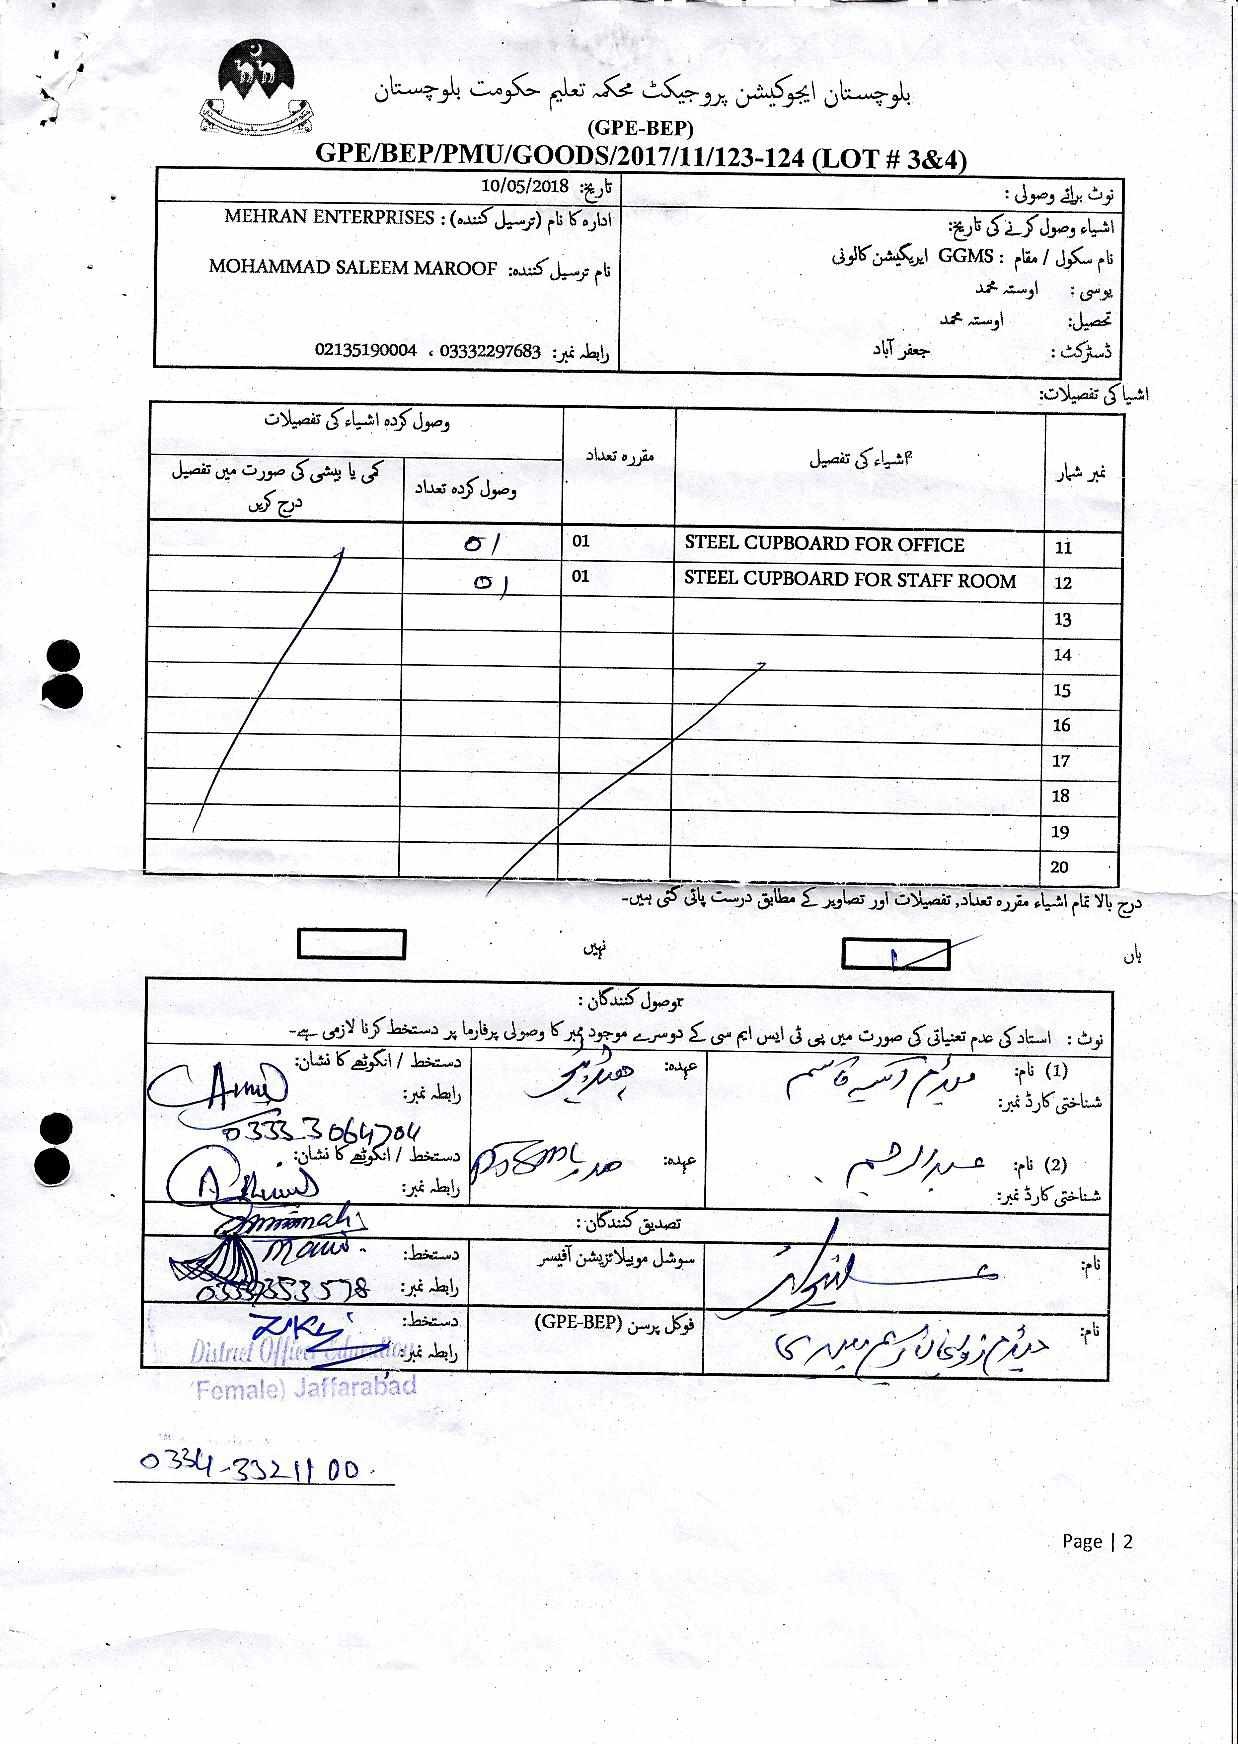 بلوچستان ایجوکیشن پروجیکٹ محکمہ تعلیم حکومت بلوچستان
(GPE-BEP)
GPE/BEP/PMU/GOODS/2017/11/123-124 (LOT # 3&4)
نوٹ برائے وصولی :
اشیاء وصول کرنے کی تاریخ:
نام سکول / مقام : GGMS ایریگیشن کالونی
یوسی : اوستہ محمد
تحصیل: اوستہ محمد
ڈسٹرکٹ : جعفر آباد
تاریخ: 10/05/2018
ادارہ کا نام (ترسیل کنندہ) : MEHRAN ENTERPRISES
نام ترسیل کنندہ: MOHAMMAD SALEEM MAROOF
رابطہ نمبر: 03332297683 ، 02135190004
اشیا کی تفصیلات:
نمبر شمار اشیاء کی تفصیل مقررہ تعداد وصول کردہ اشیاء کی تفصیلات
وصول کردہ تعداد کمی یا بیشی کی صورت میں تفصیل درج کریں
11 STEEL CUPBOARD FOR OFFICE 01 01
12 STEEL CUPBOARD FOR STAFF ROOM 01 01
13
14
15
16
17
18
19
20
درج بالا تمام اشیاء مقررہ تعداد, تفصیلات اور تصاویر کے مطابق درست پائی گئی ہیں۔
ہاں نہیں
وصول کنندگان :
نوٹ : استاد کی عدم تعنیاتی کی صورت میں پی ٹی ایس ایم سی کے دوسرے موجود ممبر کا وصولی پرفارما پر دستخط کرنا لازمی ہے۔
(1) نام: میڈم آسیہ قاسم عہدہ: دستخط / انگوٹھے کا نشان:
شناختی کارڈ نمبر: رابطہ نمبر: 0333 3064704
(2) نام: عبدالرحیم عہدہ: صدر PTSMC دستخط / انگوٹھے کا نشان:
شناختی کارڈ نمبر: رابطہ نمبر:
تصدیق کنندگان :
نام: سوشل موبیلائزیشن آفیسر دستخط:
رابطہ نمبر: 03337353578
نام: میڈم فوکل پرسن (GPE-BEP) دستخط:
رابطہ نمبر:
District Officer Education
(Female) Jaffarabad
0334-3321100
Page | 2